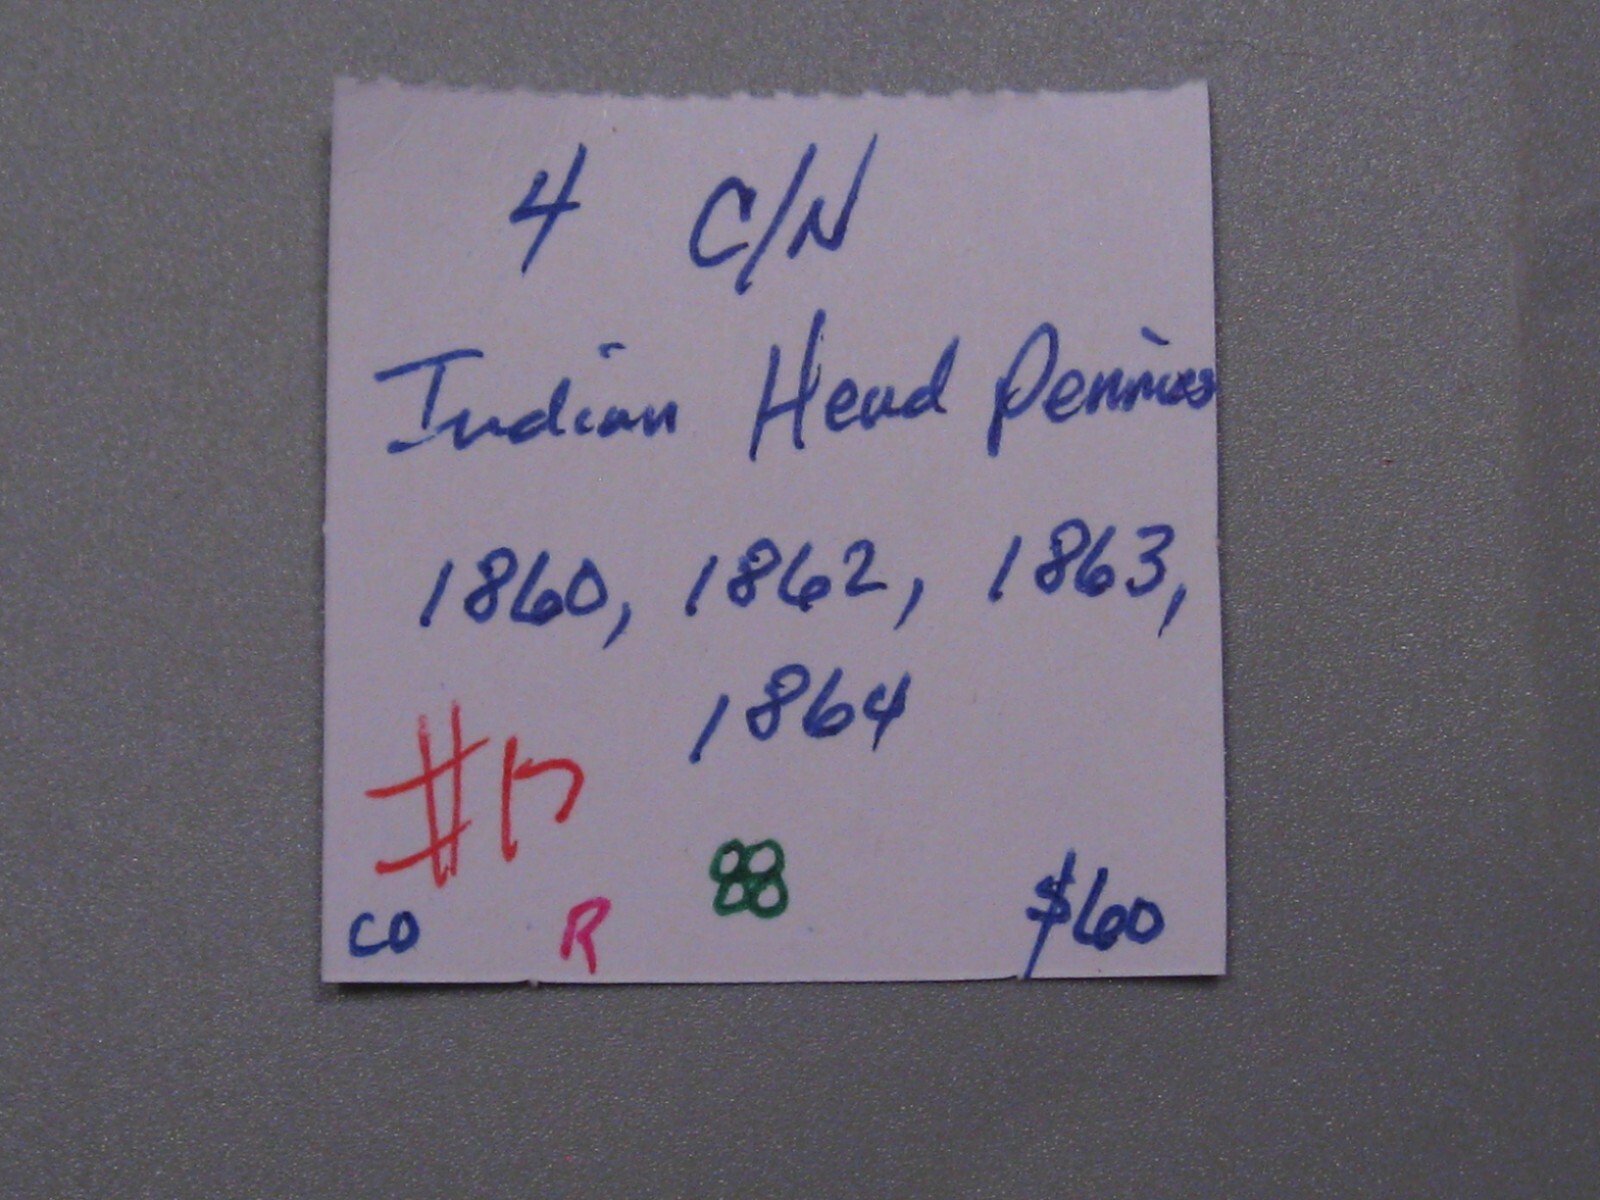 4 C/N
Indian Head Pennies
1860, 1862, 1863,
1864
#17
88
CO R $60